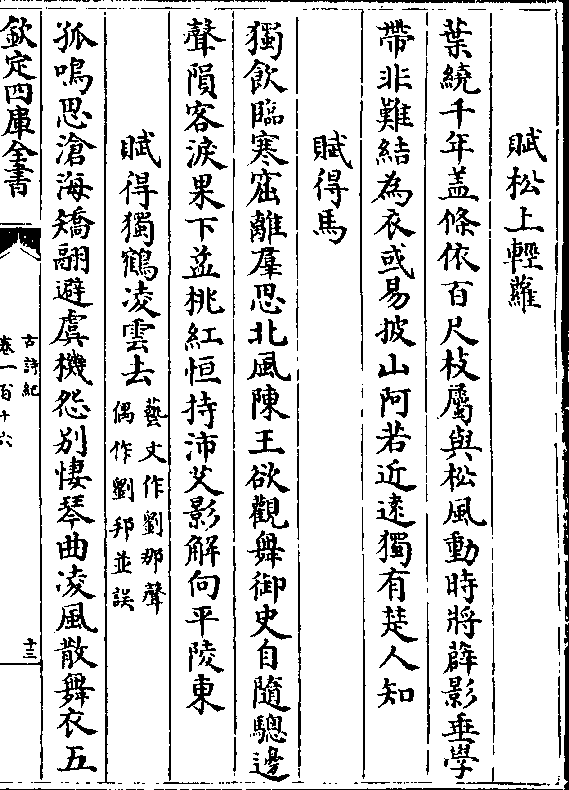 賦松上輕蘿
葉繞千年盖條依百尺枝屬與松風動時將薜影垂學
帶非難結為衣或易披山阿若近逺獨有楚人知
賦得馬
獨飲臨寒窟離羣思北風陳王欲觀舞御史自隨驄邊
聲隕客淚果下益桃紅恒持沛艾影解向平陵東
賦得獨鶴凌雲去藝文作劉那聲
偶作劉邦並誤
孤鳴思滄海矯翮避虞機怨别悽琴曲凌風散舞衣五
欽定四庫全書
古詩紀
卷一百十六
十三